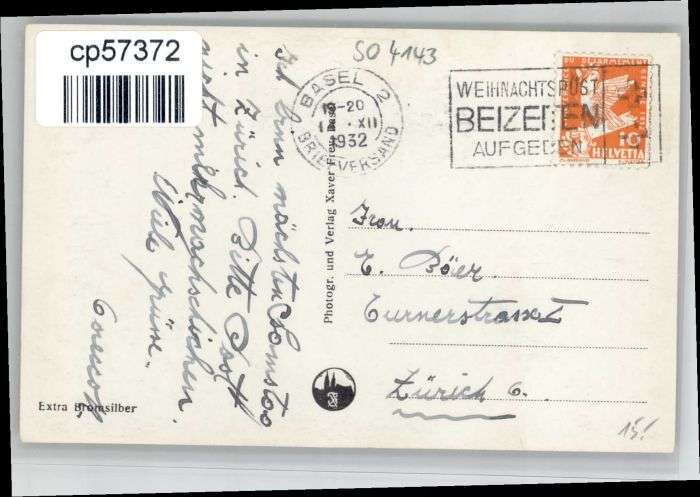 cp57372
SO 4143
BASEL 2
19-20
XII
1932
BRIEFVERSAND
WEIHNACHTSPOST
BEIZEITEN
AUFGEBEN
DU DÉSARMEMENT
10
HELVETIA
Ich bin nächsten Samstag
in Zürich. Bitte Post
nicht mehr nachschicken.
Viele Grüsse.
Photogr. und Verlag Xaver Frey, Basel
Frau.
E. Böer.
Turnerstrasse 1
Zürich 6.
Extra Bromsilber
15.-